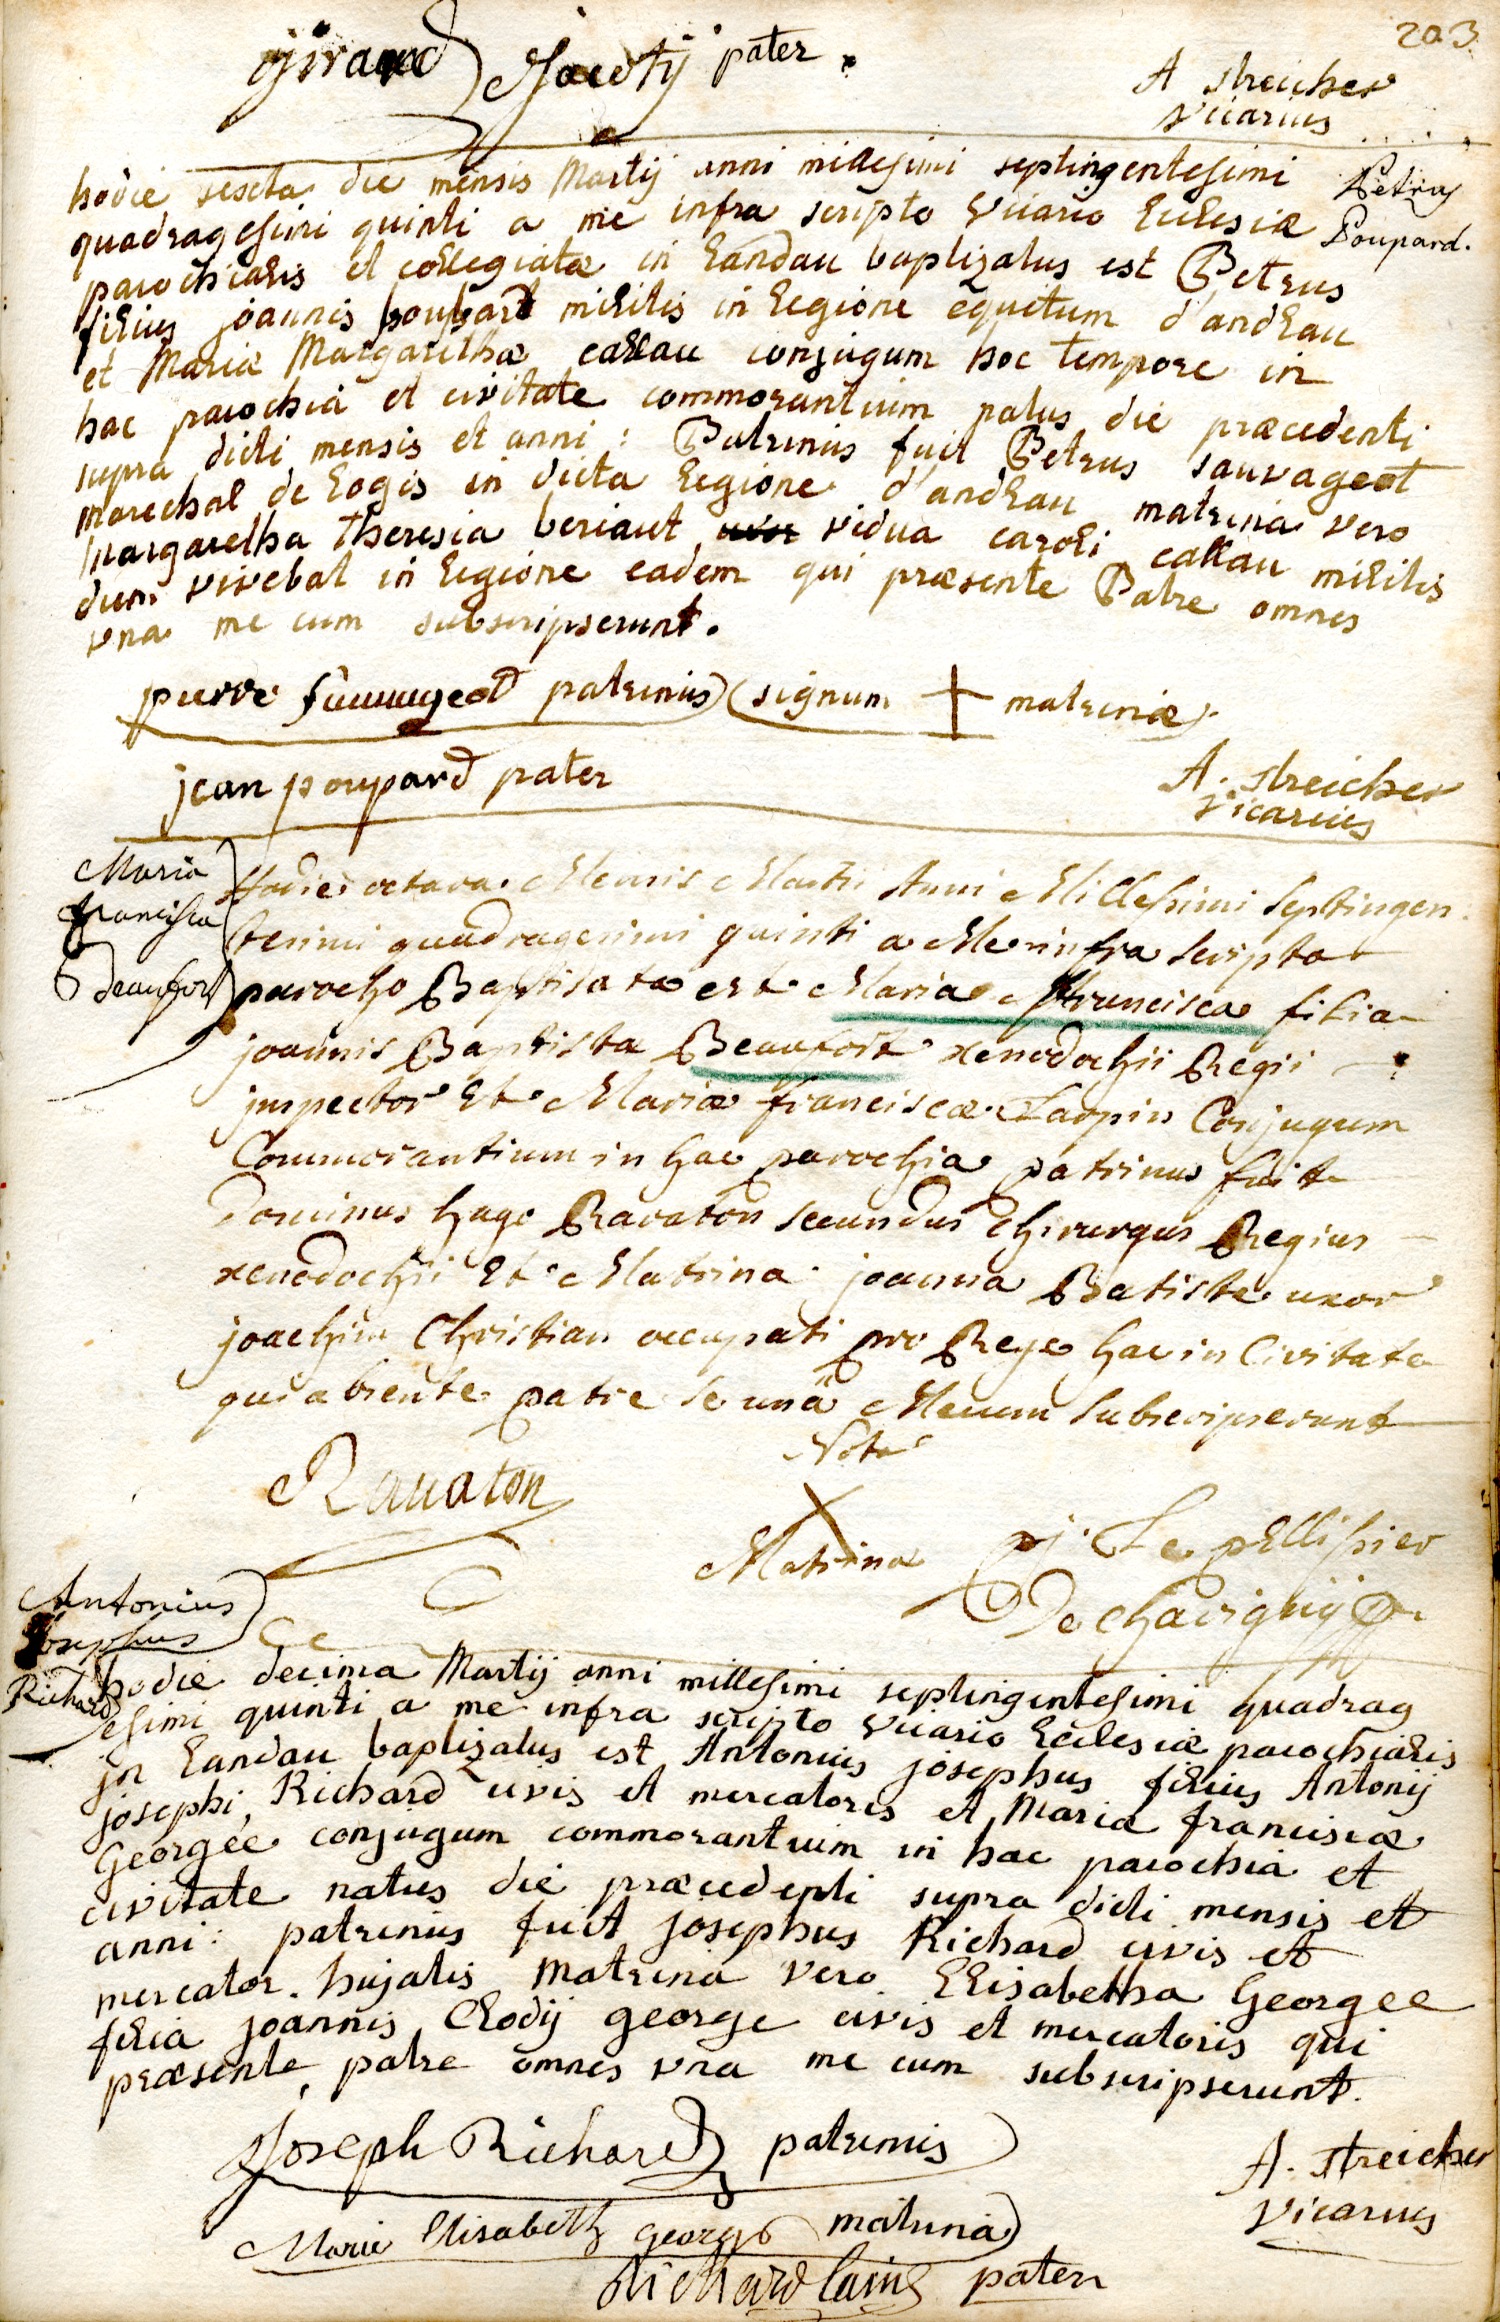 203
girard Jacoty pater.
A Streicher
vicarius
Petrus
Poupard.
hodie sexta die mensis Martij anni millesimi septingentesimi
quadragesimi quinti a me infra scripto vicario Ecclesiæ
parochialis et collegiatæ in Landau baptizatus est Petrus
filius joannis poupard militis in legione equitum d'andlau
et Mariæ Margarithæ callau conjugum hoc tempore in
hac parochia et civitate commorantium natus die præcedenti
supra dicti mensis et anni : Patrinus fuit Petrus sauvageot
marechal de Logis in dicta legione d'andlau matrina vero
Margaretha Theresia beriaut vidua caroli callau militis
dum vivebat in legione eadem qui præsente Patre omnes
vna me cum subscripserunt.
pierre sauuageot patrinus signum + matrinæ.
jean poupard pater
A. Streicher
vicarius
Maria
francisca
Beaufort
Hodie octava Mensis Martii Anni Millesimi Septingen
tesimi quadragesimi quinti a Me infra scripto
parocho Baptisata est Maria Francisca filia
joannis Baptista Beaufort xenodochii Regii
jnspector Et Mariæ franciscæ Laopin Conjugum
Commorantium in hac parochia patrinus fuit
Dominus hugo Ravaton secundus Chirurgus Regius
xenodochii Et Matrina joanna Batiste uxor
joachim Christian occupati pro Rege hac in Civitate
qui absente patre se unâ Mecum Subscripserunt
Nota
Rauaton
X
Matrina
j. Le pellissier
De chavignij
Antonius
Josephus
Richard
hodie decima Martij anni millesimi septingentesimi quadrag
esimi quinti a me infra scripto vicario Ecclesiæ parochialis
jn Landau baptizatus est Antonius josephus filius Antonij
josephi Richard civis et mercatoris et Mariæ franciscæ
Georgée conjugum commorantium in hac parochia et
civitate natus die præcedenti supra dicti mensis et
anni : patrinus fuit josephus Richard civis et
mercator hujatis Matrina vero Elisabetha Georgee
filia joannis Clodij george civis et mercatoris qui
præsente patre omnes vna me cum subscripserunt.
Joseph Richard patrinus
A. Streicher
vicarius
Marie Elisabeth george matrina
Richard lainé pater